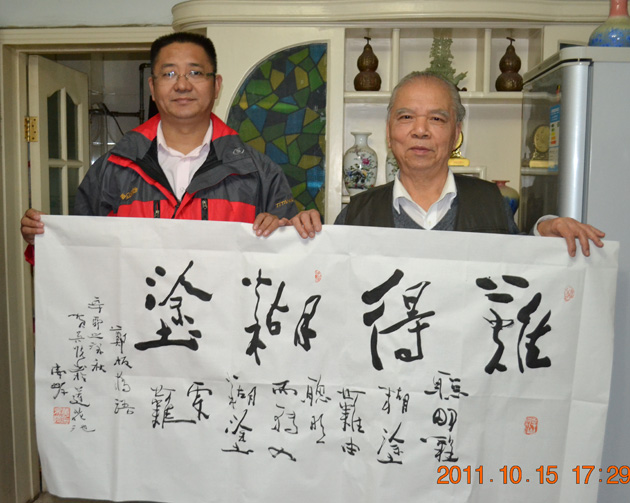 難得糊塗
聰明難
糊塗
也難由
聰明
而轉入
糊塗
難
鄭板橋語
辛卯之深秋
2011.10.15 17:29